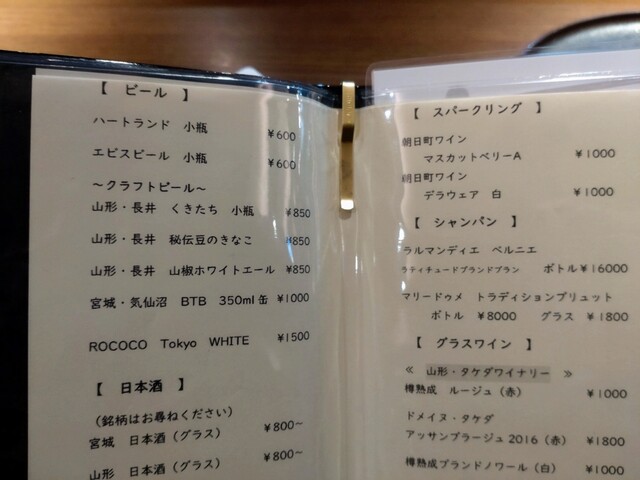 【 ビール 】
ハートランド 小瓶 ¥600
エビスビール 小瓶 ¥600
～クラフトビール～
山形・長井 くきたち 小瓶 ¥850
山形・長井 秘伝豆のきなこ ¥850
山形・長井 山椒ホワイトエール ¥850
宮城・気仙沼 BTB 350ml缶 ¥1000
ROCOCO Tokyo WHITE ¥1500
【 日本酒 】
（銘柄はお尋ねください）
宮城 日本酒（グラス） ¥800~
山形 日本酒（グラス） ¥800~
【 スパークリング 】
朝日町ワイン
マスカットベリーA ¥1000
朝日町ワイン
デラウェア 白 ¥1000
【 シャンパン 】
ラルマンディエ ベルニエ
ラティチュードブランドブラン ボトル¥16000
マリードゥメ トラディションブリュット
ボトル ¥8000 グラス ¥1800
【 グラスワイン 】
≪ 山形・タケダワイナリー ≫
樽熟成 ルージュ（赤） ¥1000
ドメイヌ・タケダ
アッサンブラージュ2016（赤） ¥1800
樽熟成ブランドノワール（白） ¥1000